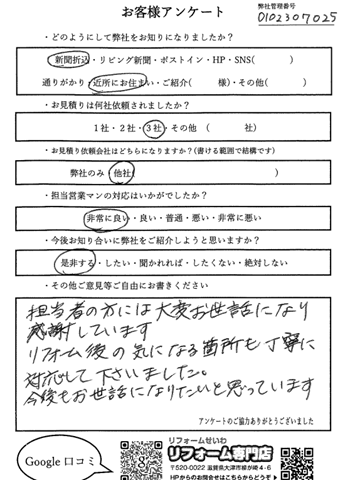 お客様アンケート
弊社管理番号
0102307025
・どのようにして弊社をお知りになりましたか？
新聞折込・リビング新聞・ポストイン・HP・SNS(　　　)
通りがかり・近所にお住まい・ご紹介(　　　様)・その他(　　　)
・お見積りは何社依頼されましたか？
1社・2社・3社・その他　(　　　社)
・お見積り依頼会社はどちらになりますか？(書ける範囲で結構です)
弊社のみ・他社(　　　)
・担当営業マンの対応はいかがでしたか？
非常に良い・良い・普通・悪い・非常に悪い
・今後お知り合いに弊社をご紹介しようと思いますか？
是非する・したい・聞かれれば・したくない・絶対しない
・その他ご意見等ご自由にお書きください
担当者の方には大変お世話になり
感謝しています
リフォーム後の気になる箇所も丁寧に
対応して下さいました。
今後もお世話になりたいと思っています
アンケートのご協力ありがとうございました
Google 口コミ
リフォームせいわ
リフォーム専門店
〒520-0022 滋賀県大津市柳が崎4-6
HPからのお問合せはこちらからどうぞ